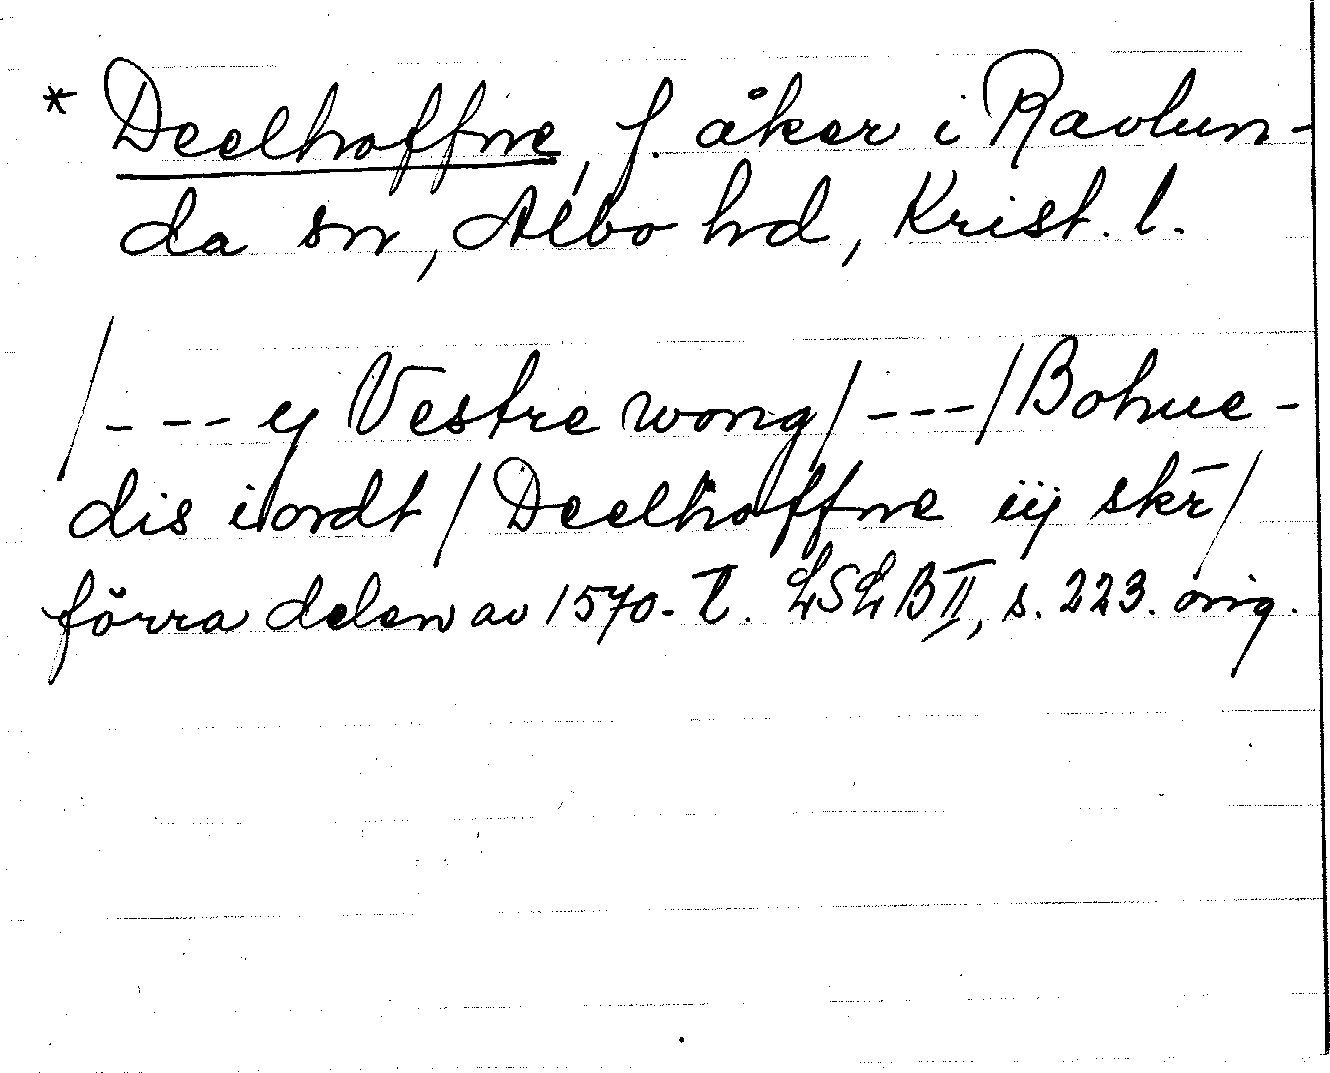 * Deelhoffne, f. åker i Ravlun-
da sn, Albo hd, Krist. l.
/--- ij Vestre wong/---/Bohne-
dis iordt / Deelhoffne iij skr̄/
förra delen av 1570-t. LSLB II, s. 223. orig.